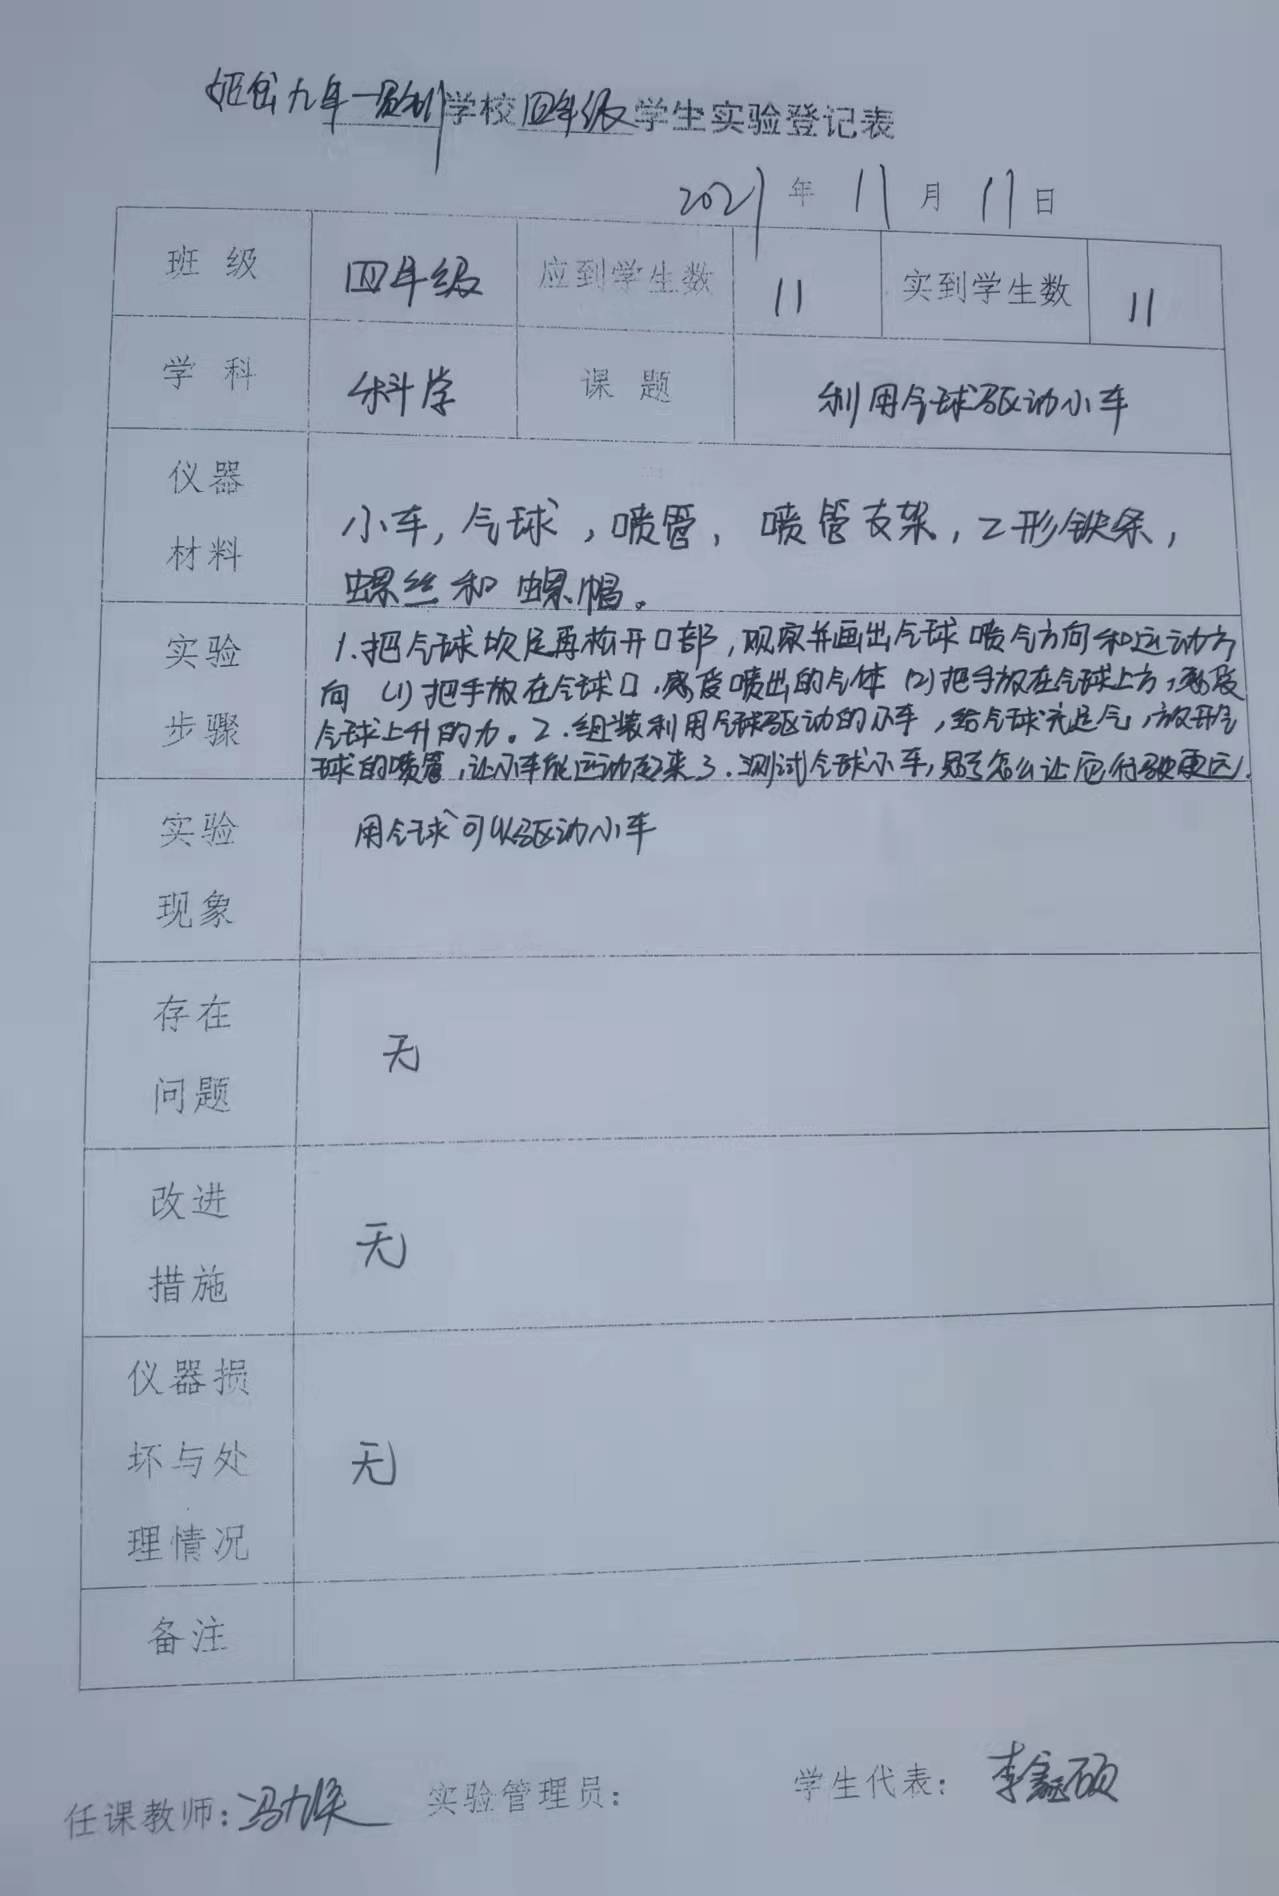 姬岔九年一贯制学校四年级学生实验登记表
2021年11月11日
班级 四年级 应到学生数 11 实到学生数 11
学科 科学 课题 利用气球驱动小车
仪器材料
小车，气球，喷管，喷管支架，Z形铁条，
螺丝和螺帽。
实验步骤
1.把气球吹足再松开口部，观察并画出气球喷气方向和运动方
向 (1)把手放在气球口，感受喷出的气体 (2)把手放在气球上方，感受
气球上升的力。2.组装利用气球驱动的小车，给气球充足气，放开气
球的喷管，让小车能运动起来3.测试气球小车，思考怎么让它行驶更远.
实验现象
用气球可以驱动小车
存在问题
无
改进措施
无
仪器损坏与处理情况
无
备注
任课教师：冯 实验管理员： 学生代表：李鑫硕